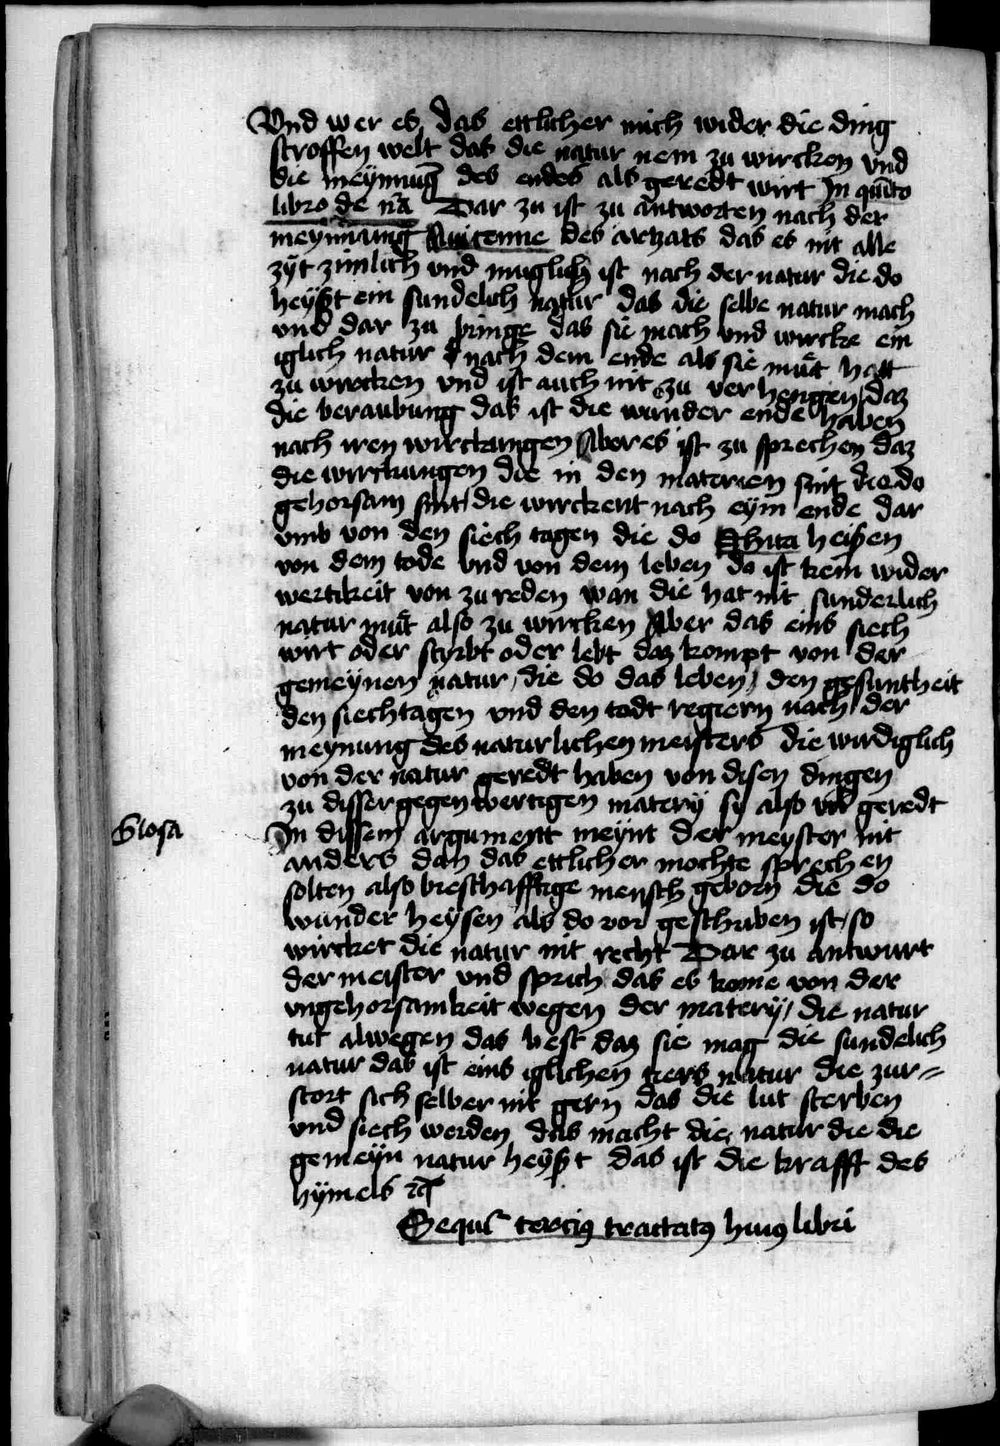 Vnd wer es das ettlicher mich wider die ding
stroffen welt das die natur nem zu wircken vnd
die meynung des endes als geredt wirt In quīto
libro de nā Dar zu ist zu antworten nach der
meynnung Auicenne des artzats das es nit alle
zyt zimlich vnd muglich ist nach der natur die do
heyßt ein sundelich natur das die selbe natur mach
vnd dar zu bringe das sie mach vnd wircke ein
iglich natur nach dem ende als sie mut hatt
zu wircken vnd ist auch nit zu ver hengen daz
die beraubung das ist die wunder ende haben
nach iren wirckungen Aber es ist zu sprechen daz
die wirckungen die in den materien sint die do
gehorsam sint / die wirckent nach eym ende dar
vmb von den siech tagen die do heisen
von dem tode vnd von dem leben do ist kein wider
wertikeit von zu reden wan die hat nit sunderlich
natur mut also zu wircken Aber das eins siech
wirt oder styrbt oder lebt daz kompt von der
gemeynen natur / die do das leben / den gesuntheit
den siechtagen vnd den todt regiern nach der
meynung des naturlichen meisters die wirdiglich
von der natur geredt haben von disen dingen
zu disser gegenwertigen matery sy also vil geredt
Glosa
In dissem argument meynt der meyster nit
anders dan das ettlicher mochte sprechen
solten also bresthafftige mensch geborn die do
wunder heysen als do vor geschriben ist / so
wircket die natur nit recht Dar zu antwurt
der meister vnd sprich das es kome von der
vngehorsamkeit wegen der matery / die natur
tut alwegen das best daz sie mag die sundelich
natur das ist eins iglichen tiers natur die zur=
stort sich selber nit gern das die lut sterben
vnd siech werden das macht die natur die die
gemeyn natur heyßt das ist die krafft des
hymels ⁊c
Sequit~ tercius tractatus huius libri